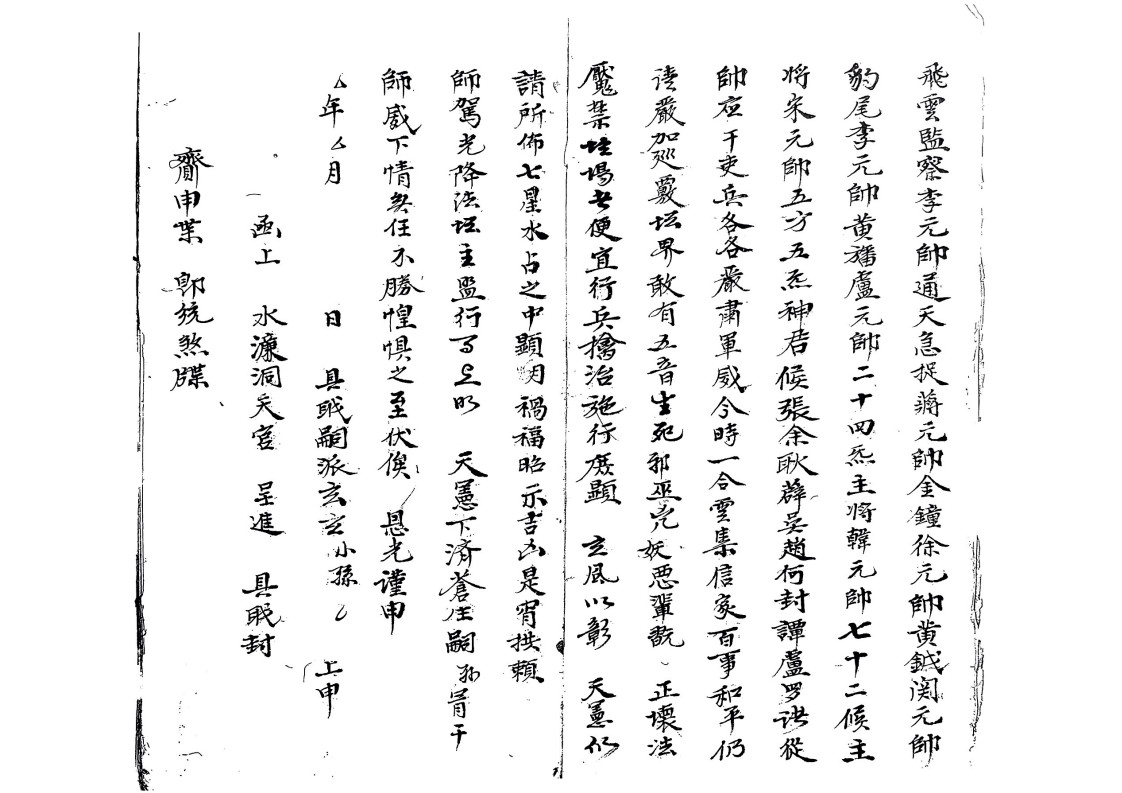 飛雲監察李元帥通天急捉蔣元帥金鐘徐元帥黃鉞関元帥
豹尾李元帥黃旛盧元帥二十四炁主將韓元帥七十二候主
將宋元帥五方五炁神君候張余耿薛吳趙何封譚盧罗諸從
帥应干吏兵各各嚴肅軍威今時一合雲集信家百事和平仍
請嚴加廵覈坛界敢有五音生死邪巫咒妖悪輩翫正壞法
魘禁坛場者便宜行兵擒治施行庶顯 玄風以彰 天憲仍
請所佈七星水占之中顯明禍福昭示吉凶是宵拱賴
師駕光降法坛主盟行事上明 天憲下済蒼生嗣孙冐干
師威下情無任不勝惶惧之至伏俟 恩光謹申
厶年厶月 日 具戠嗣派玄玄小孫 上申
函上 水濂洞天宮 呈進 具戠封
齎申業 即統煞牒